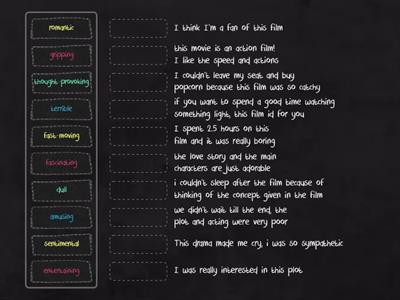 romantic
I think I'm a fan of this film
gripping
this movie is an action film!
I like the speed and actions
thought-provoking
I couldn't leave my seat and buy
popcorn because this film was so catchy
terrible
if you want to spend a good time watching
something light, this film id for you
fast-moving
I spent 2.5 hours on this
film and it was really boring
fascinating
the love story and the main
characters are just adorable
dull
i couldn't sleep after the film because of
thinking of the concept given in the film
amusing
we didn't wait till the end, the
plot and acting were very poor
sentimental
This drama made me cry, i was so sympathetic
entertaining
I was really interested in this plot